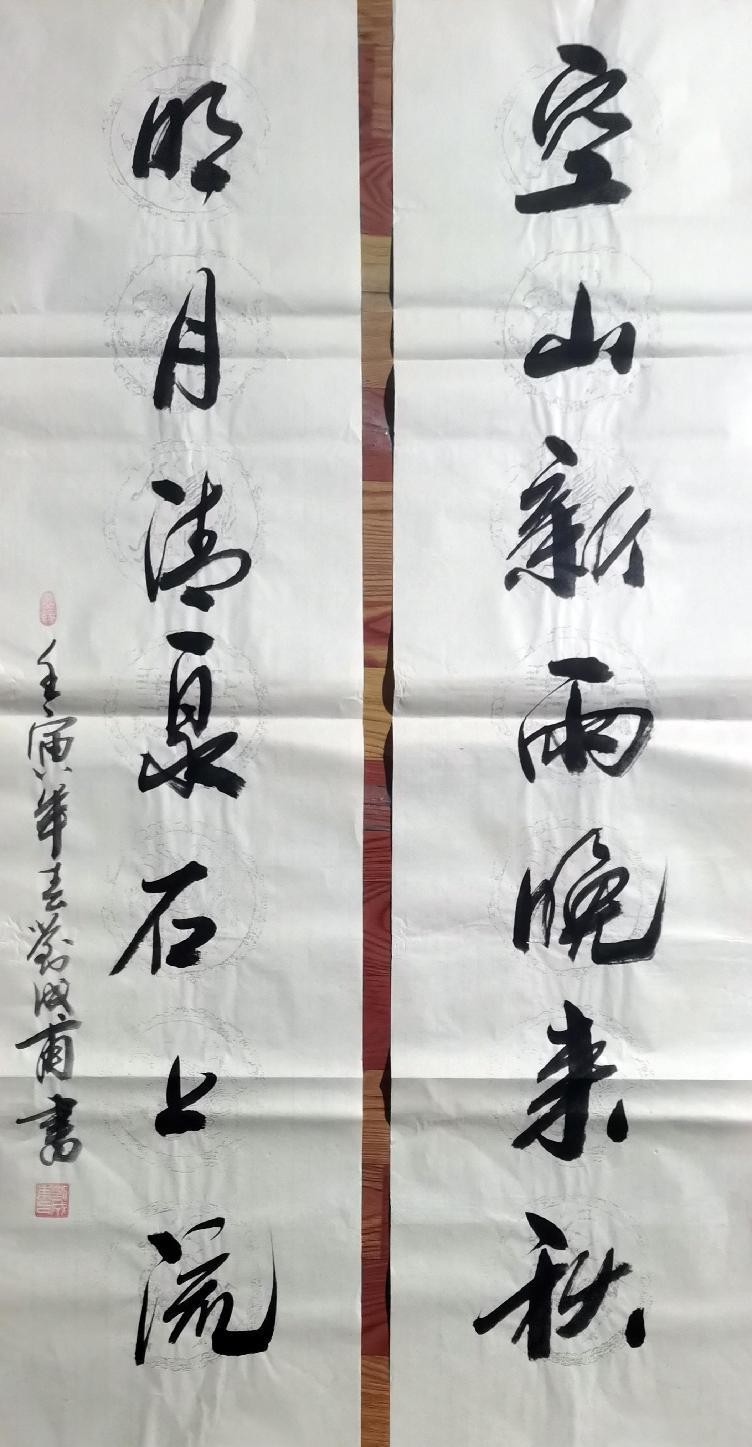 空山新雨晚来秋
明月清泉石上流
壬寅年春劉成甫書